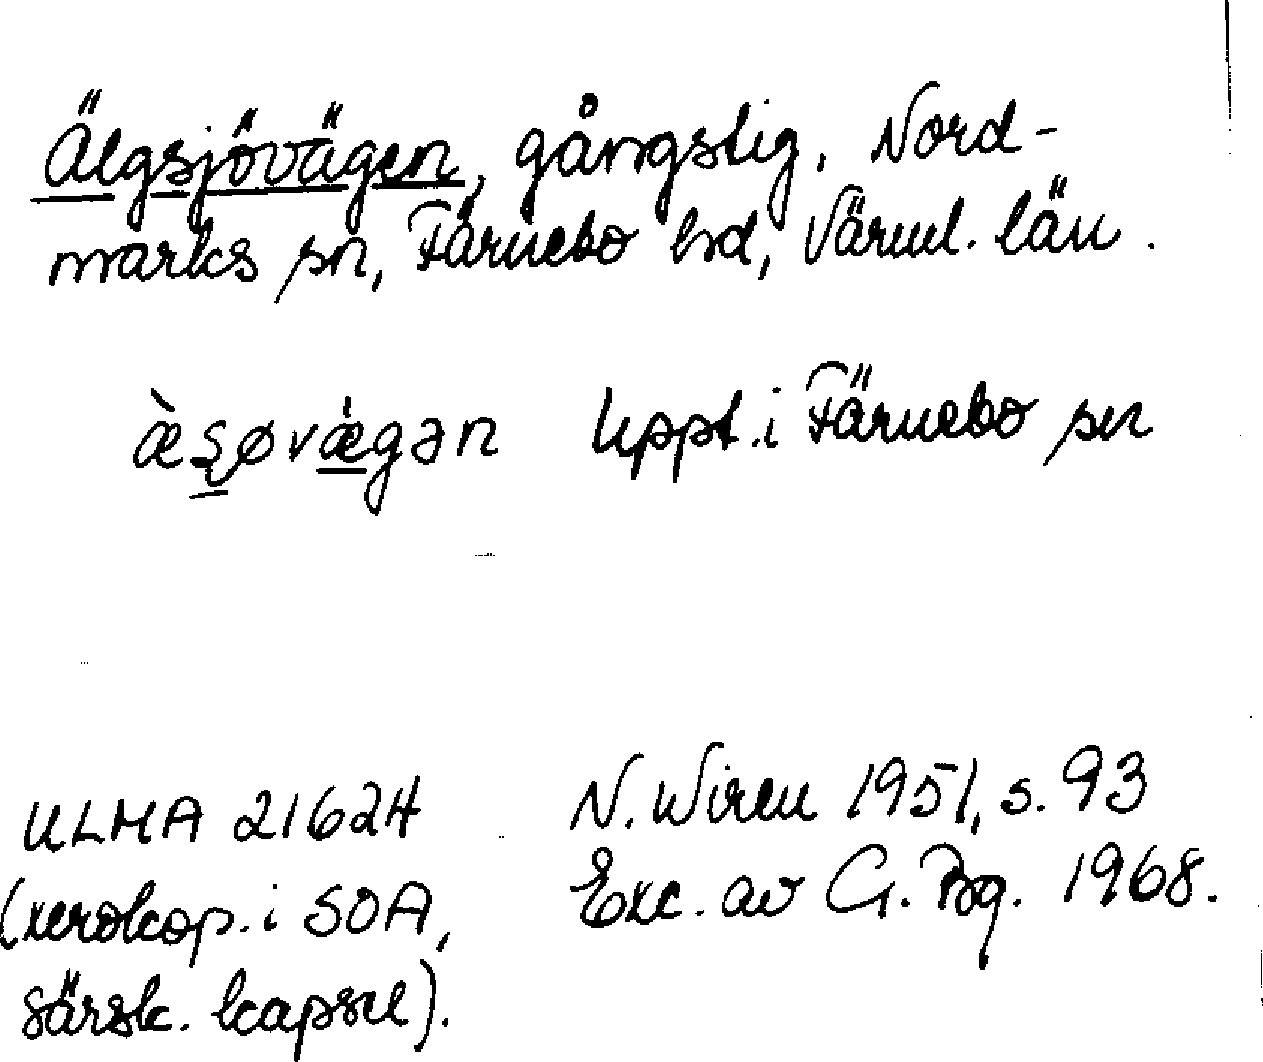 Älgsjövägen, gångstig, Nord-
marks sn, Färnebo hd, Värml. län.
Uppt. i Färnebo sn
ULMA 21624 N. Wiren 1951, s. 93
(xerokop. i SOA, Exc. av G. Bg. 1968.
särsk. kapsel).